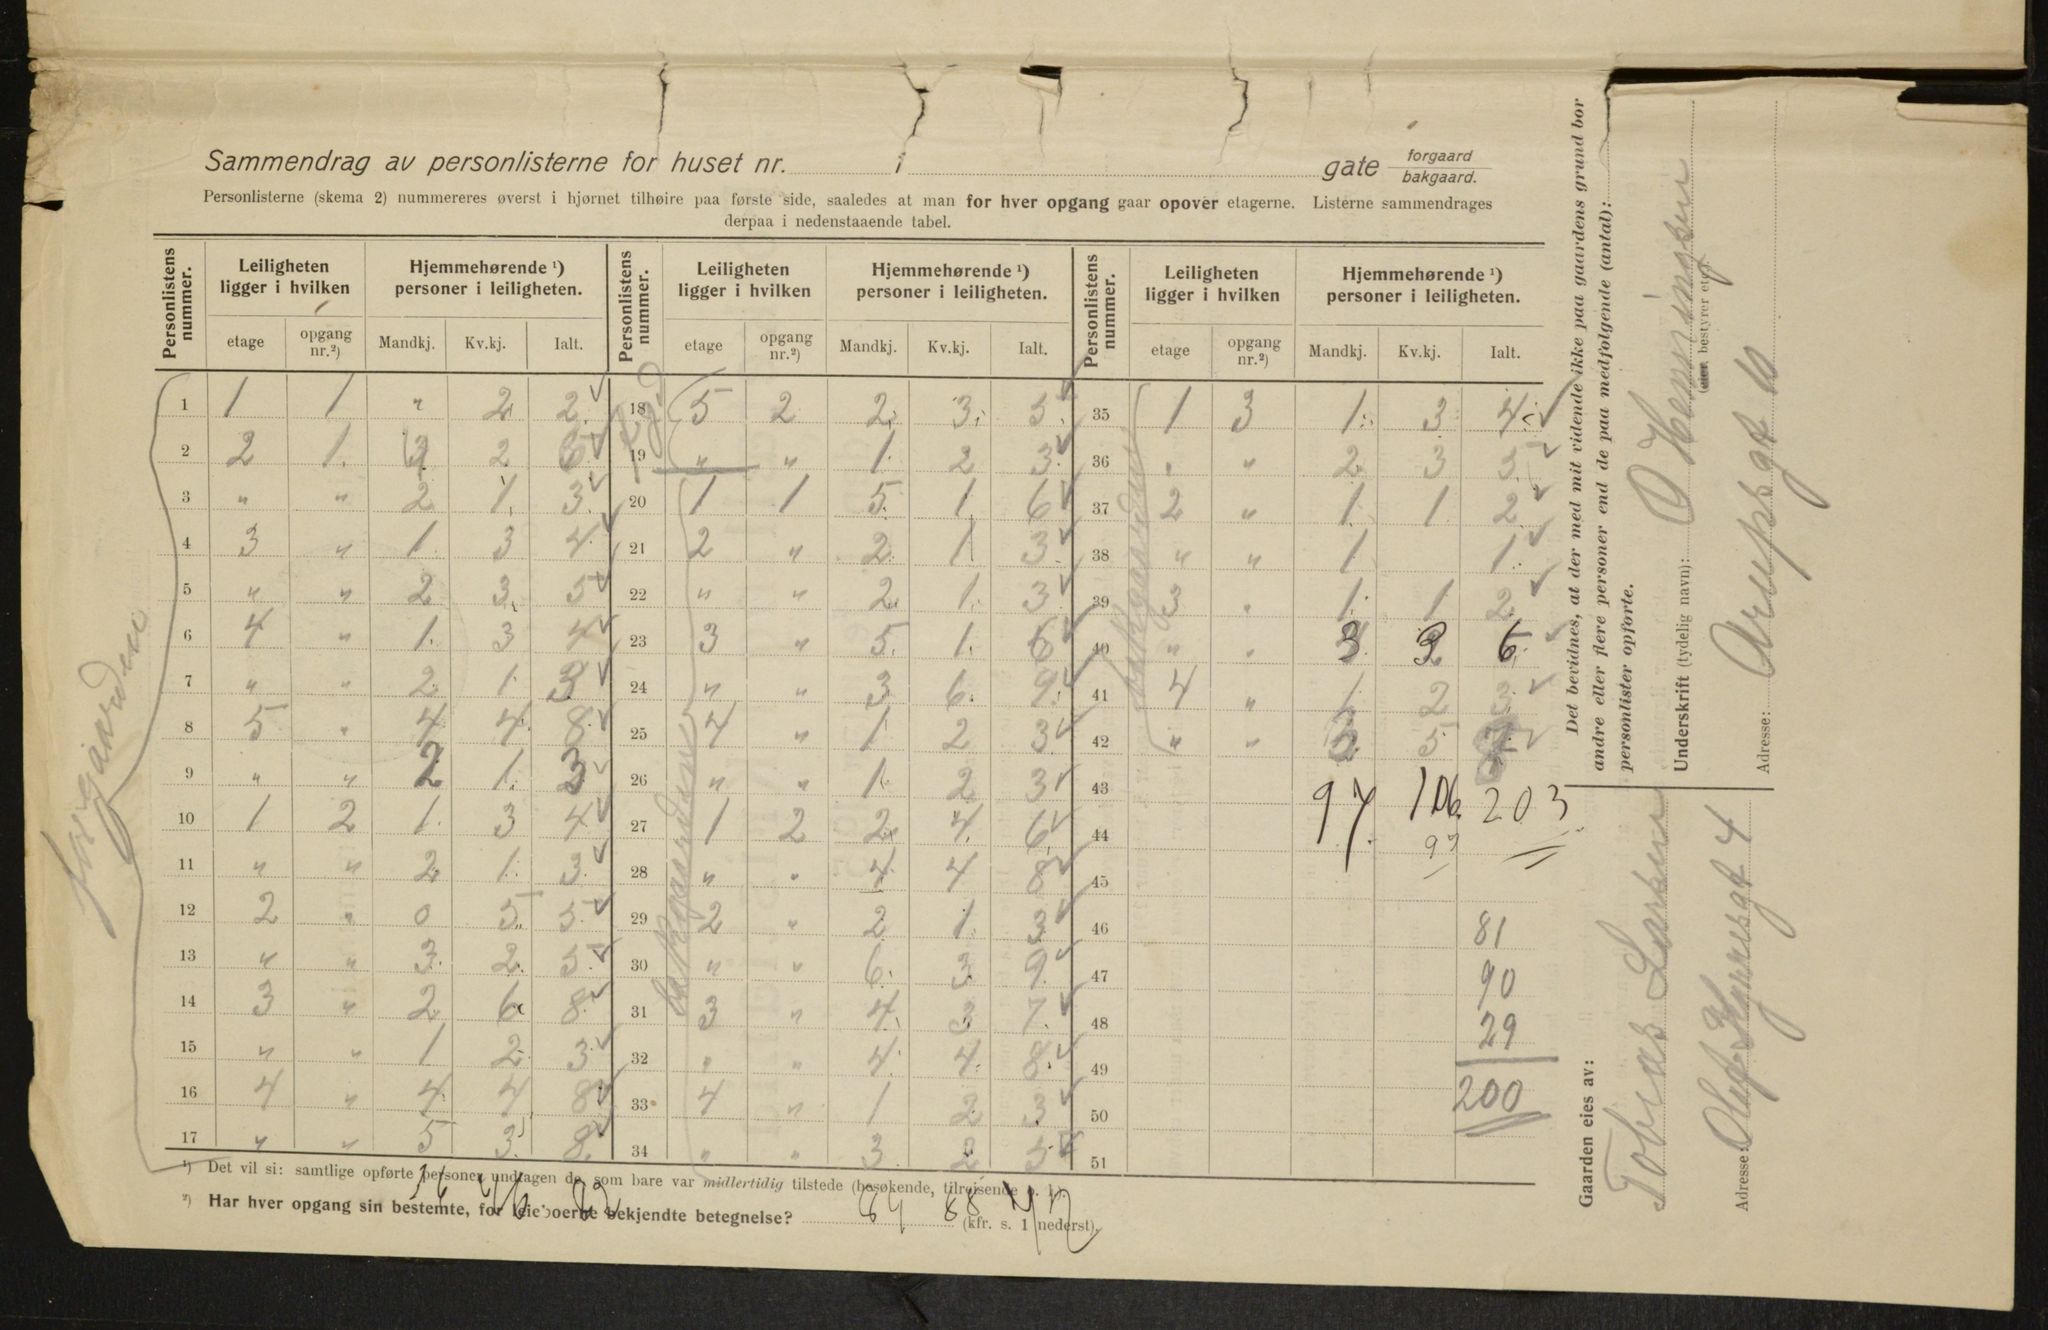 Sammendrag av personlisterne for huset nr. i gate forgaard bakgaard.
Personlisterne (skema 2) nummereres øverst i hjørnet tilhøire paa første side, saaledes at man for hver opgang gaar opover etagerne. Listerne sammendrages
derpaa i nedenstaaende tabel.
Personlistens nummer. Leiligheten ligger i hvilken Hjemmehørende ¹) personer i leiligheten. Personlistens nummer. Leiligheten ligger i hvilken Hjemmehørende ¹) personer i leiligheten. Personlistens nummer. Leiligheten ligger i hvilken Hjemmehørende ¹) personer i leiligheten.
etage opgang nr.²) Mandkj. Kv.kj. Ialt. etage opgang nr.²) Mandkj. Kv.kj. Ialt. etage opgang nr.²) Mandkj. Kv.kj. Ialt.
1 1 1 " 2 2 18 5 2 2 3 5 35 1 3 1 3 4
2 2 1 2 19 " " 1 2 3 36 " " 2 3 5
3 " " 2 1 3 20 1 1 5 1 6 37 2 " 1 1 2
4 3 " 1 3 4 21 2 " 2 1 3 38 " " 1 1
5 " " 2 3 5 22 " " 2 1 3 39 3 " 1 1 2
6 4 " 1 3 4 23 3 " 5 1 6 40 " " 3
7 " " 2 1 3 24 " " 3 6 9 41 4 " 1 2 3
8 5 " 4 4 8 25 4 " 1 2 3 42 " " 5
9 " " 2 1 3 26 " " 1 2 3 43 97 106 203
10 1 2 1 3 4 27 1 2 2 4 6 44 97
11 " " 2 1 3 28 " " 4 4 8 45
12 2 " 0 5 5 29 2 " 2 1 3 46 81
13 " " 3 2 5 30 " " 6 3 9 47 90
14 3 " 2 6 8 31 3 " 4 3 7 48 29
15 " " 1 2 3 32 " " 4 4 8 49
16 4 " 4 4 8 33 4 " 1 2 3 50 200
17 " " 5 3 8 34 " " 3 2 5 51
forgaarden
bakgaarden
bakgaarden
¹) Det vil si: samtlige opførte personer undtagen de som bare var midlertidig tilstede (besøkende, tilreisende
²) Har hver opgang sin bestemte, for beboerne bekjendte betegnelse? (kfr. s. 1 nederst).
Det bevidnes, at der med mit vidende ikke paa gaardens grund bor
andre eller flere personer end de paa medfølgende (antal):
personlister opførte.
Underskrift (tydelig navn): O Henningsen
(eier, bestyrer etc.)
Adresse: Arupsgt 10
Gaarden eies av:
Tobias Larsen
Adresse: Oluf